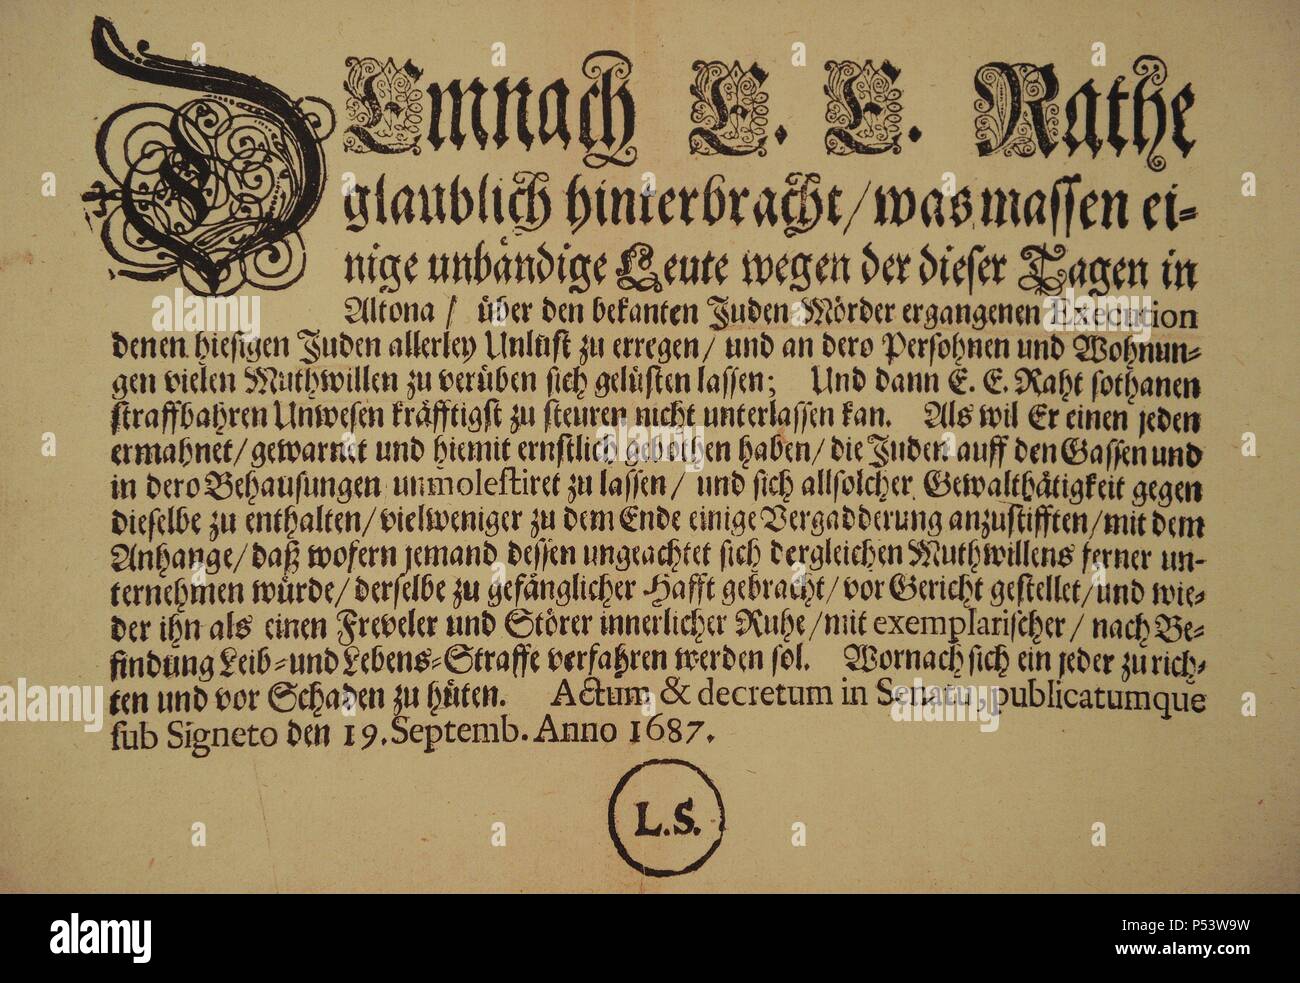 DEmnach E. E. Rathe
glaublich hinterbracht/was massen ei-
nige unbändige Leute wegen der dieser Tagen in
Altona / über den bekanten Juden-Mörder ergangenen Execution
denen hiesigen Juden allerley Unlust zu erregen/ und an dero Persohnen und Wohnun-
gen vielen Muthwillen zu verüben sich gelüsten lassen; Und dann E. E. Raht sothanen
straffbahren Unwesen kräfftigst zu steuren nicht unterlassen kan. Als wil Er einen jeden
ermahnet/gewarnet und hiemit ernstlich gebothen haben/die Juden auff den Gassen und
in dero Behausungen unmolestiret zu lassen/ und sich allsolcher Gewalthätigkeit gegen
dieselbe zu enthalten/vielweniger zu dem Ende einige Vergadderung anzustifften/mit dem
Anhange/daß wofern jemand dessen ungeachtet sich dergleichen Muthwillens ferner un-
ternehmen würde/derselbe zu gefänglicher Hafft gebracht/vor Gericht gestellet/und wie-
der ihn als einen Freveler und Störer innerlicher Ruhe/mit exemplarischer/nach Be-
findung Leib-und Lebens-Straffe verfahren werden sol. Wornach sich ein jeder zu rich-
ten und vor Schaden zu hüten. Actum & decretum in Senatu, publicatumque
sub Signeto den 19. Septemb. Anno 1687.
L.S.
alamy
Image ID: P53W9W
www.alamy.com